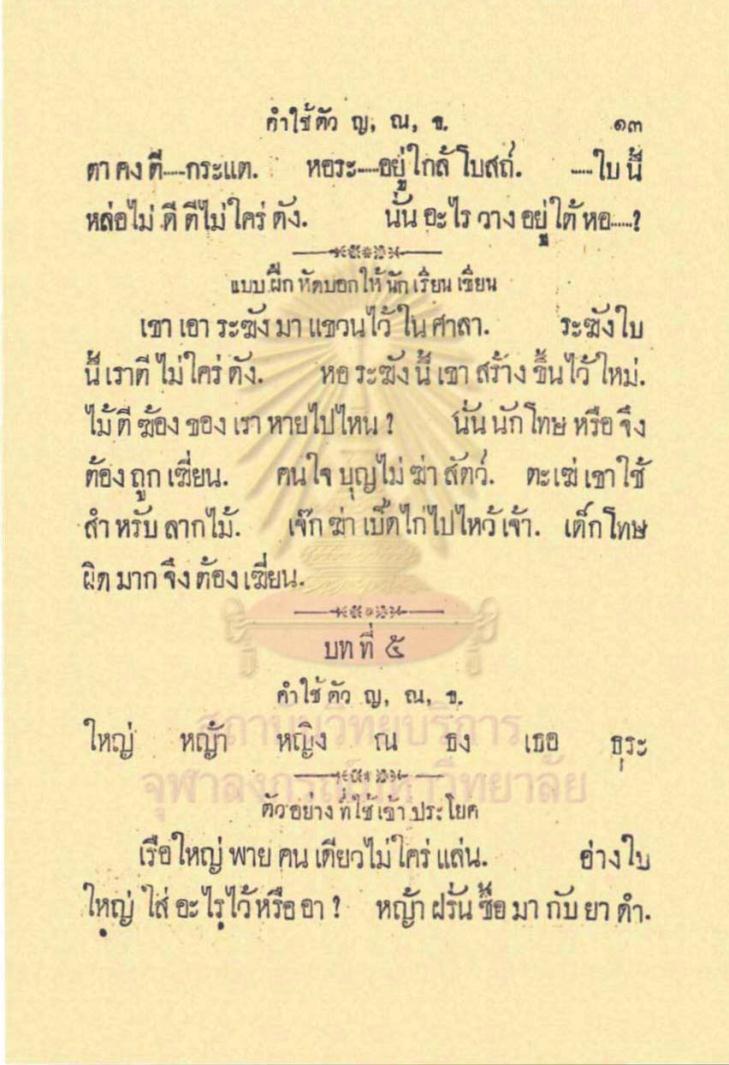 คำใช้ตัว ญ, ณ, ธ. ๑๓
ตา คง ตี----กระแต. หอระ----อยู่ ใกล้ โบสถ์. ----ใบ นี้
หล่อไม่ ดี ตีไม่ ใคร่ ดัง. นั่น อะไร วาง อยู่ ใต้ หอ----?
แบบ ฝึก หัดบอกให้ นัก เรียน เขียน
เขา เอา ระฆัง มา แขวนไว้ ใน ศาลา. ระฆังใบ
นี้ เราตี ไม่ ใคร่ ดัง. หอ ระฆัง นี้ เขา สร้าง ขึ้นไว้ ใหม่.
ไม้ ตี ฆ้อง ของ เรา หายไปไหน ? นั่น นัก โทษ หรือ จึง
ต้อง ถูก เฆี่ยน. คนใจ บุญไม่ ฆ่า สัตว์. ตะเฆ่ เขาใช้
สำ หรับ ลากไม้. เจ๊ก ฆ่า เป็ดไก่ไปไหว้ เจ้า. เด็กโทษ
ผิด มาก จึง ต้อง เฆี่ยน.
บท ที่ ๕
คำใช้ ตัว ญ, ณ, ธ.
ใหญ่ หญ้า หญิง ณ ธง เธอ ธุระ
ตัวอย่าง ที่ใช้ เข้า ประโยค
เรือใหญ่ พาย คน เดียวไม่ ใคร่ แล่น. อ่างใบ
ใหญ่ ใส่ อะไรไว้หรือ อา ? หญ้า ฝรั่น ซื้อ มา กับ ยา ดำ.
สถาบันวิทยบริการ
จุฬาลงกรณ์มหาวิทยาลัย